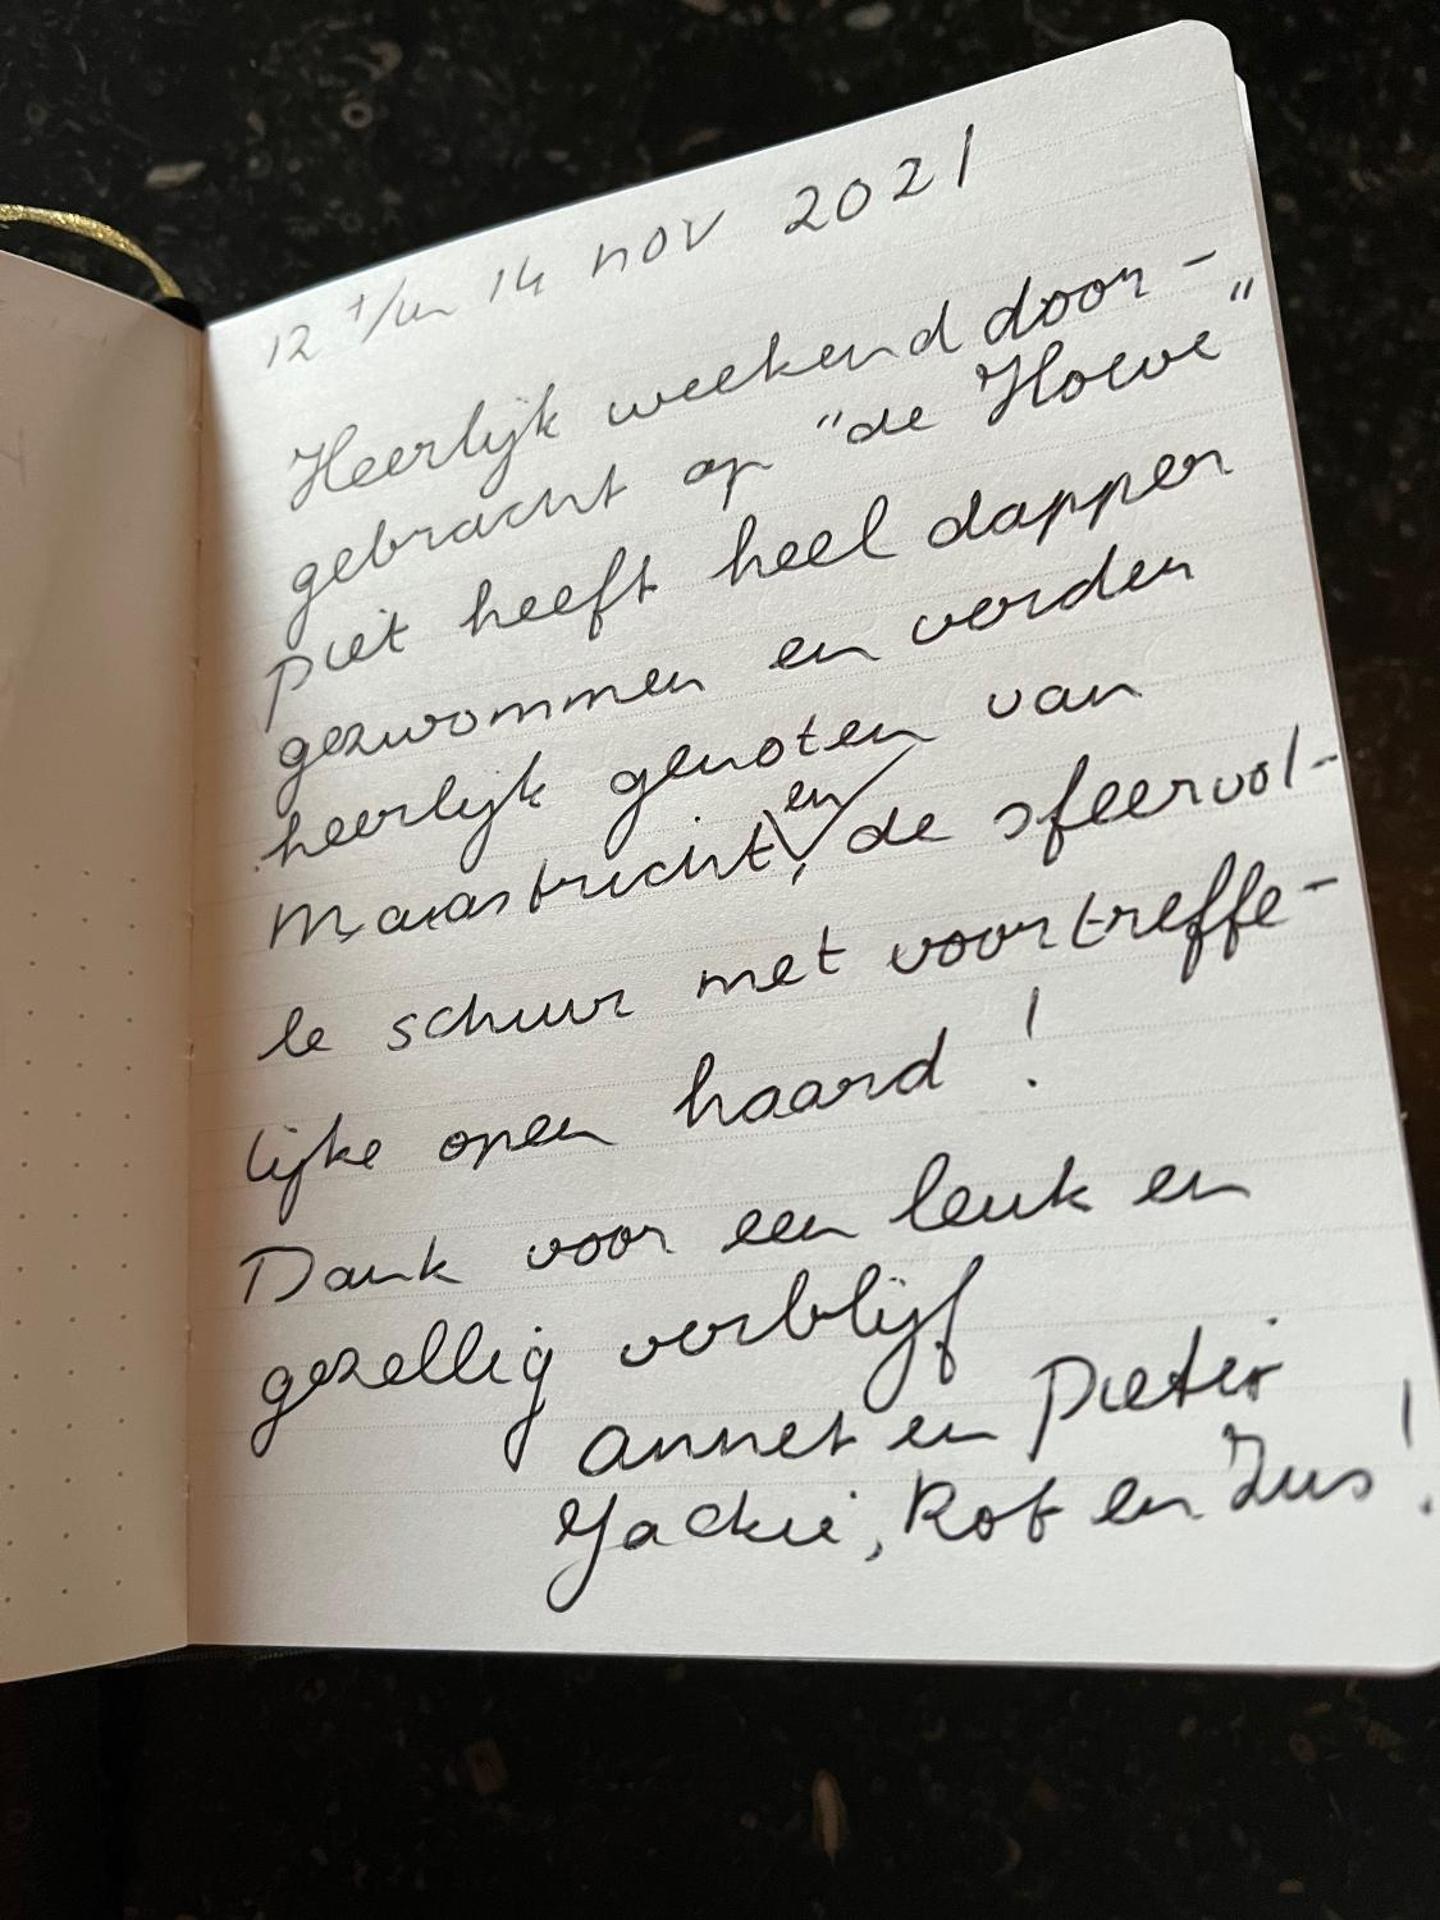 12 t/m 14 nov 2021
Heerlijk weekend door-
gebracht op "de Hoeve"
Piet heeft heel dapper
gezwommen en verder
heerlijk genoten van
en
Maastricht, de sfeervol-
le schuur met voortreffe-
lijke open haard !
Dank voor een leuk en
gezellig verblijf
Annet en Pieter
Jackie, Rob en Zus !